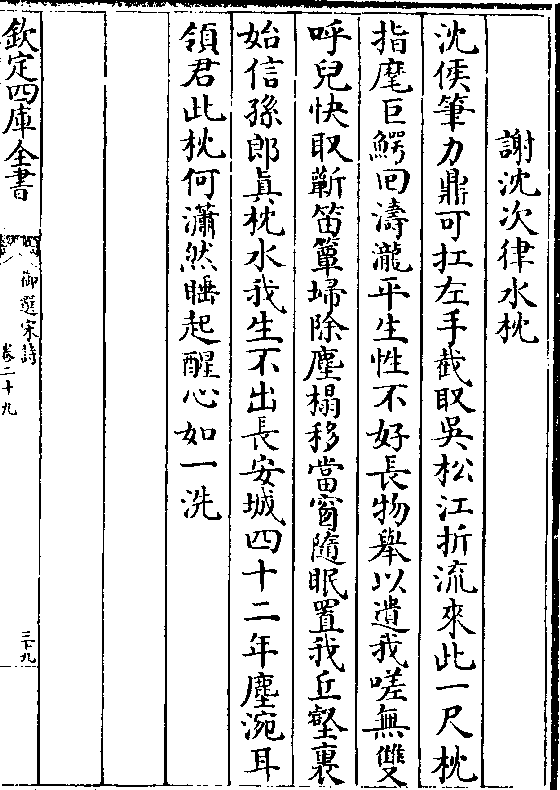 謝沈次律水枕
沈侯筆力鼎可扛左手截取吳松江折流來此一尺枕
指麾巨鰐回濤瀧平生性不好長物舉以遺我嗟無雙
呼兒快取蘄笛簟埽除塵榻移當窗隨眠置我丘壑裏
始信孫郎真枕水我生不出長安城四十二年塵涴耳
領君此枕何瀟然睡起醒心如一洗
欽定四庫全書
御選宋詩
卷二十九
三十九